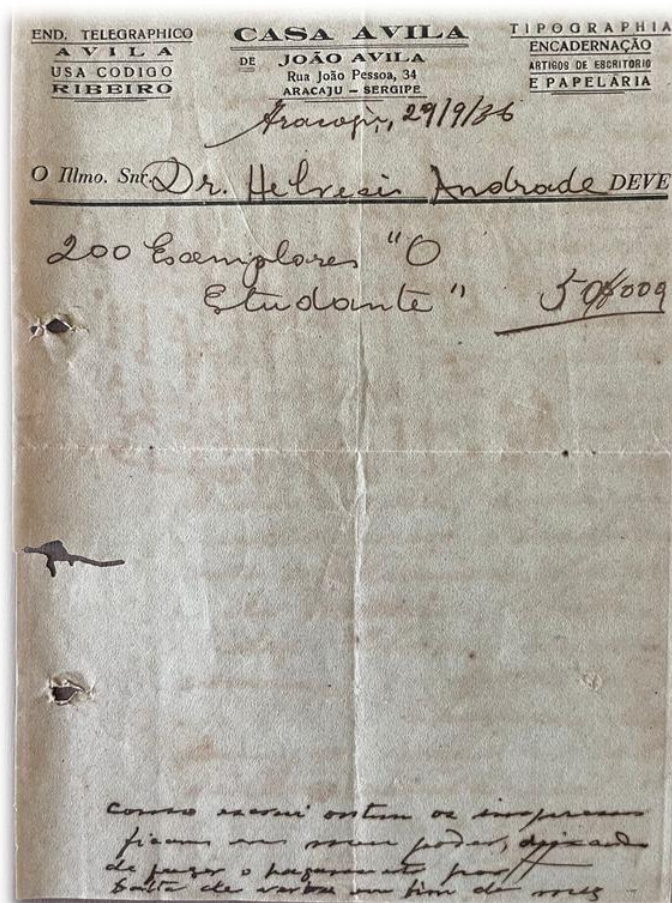 END. TELEGRAPHICO
AVILA
USA CODIGO
RIBEIRO
CASA AVILA
DE JOÃO AVILA
Rua João Pessoa, 34
ARACAJU – SERGIPE
TIPOGRAPHIA
ENCADERNAÇÃO
ARTIGOS DE ESCRITORIO
E PAPELÁRIA
Aracaju, 29/9/36
O Illmo. Snr. Dr. Helvecio Andrade DEVE
200 Exemplares "O
Etudante" 50$000
como escrevi ontem os impressos
ficam em meu poder, deixando
de fazer o pagamento por
falta de verba em fim de mez